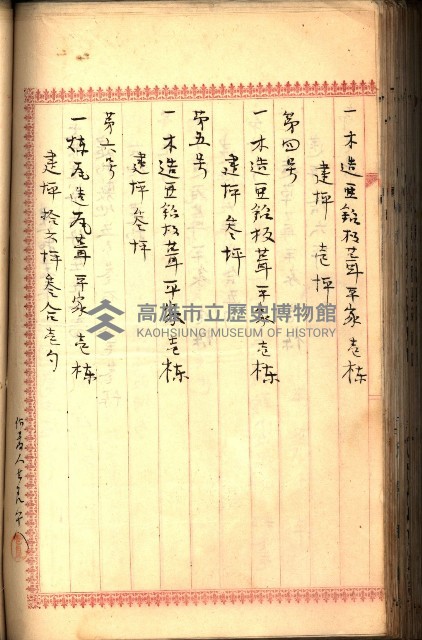 一木造亜鉛板葺平家壱棟
建坪六壱坪
第四号
一木造亜鉛板葺平家壱棟
建坪参坪
第五号
一木造亜鉛板葺平家壱棟
建坪参坪
第六号
一煉瓦造瓦葺平家壱棟
建坪拾七坪参合壱勺
高雄市立歷史博物館
KAOHSIUNG MUSEUM OF HISTORY